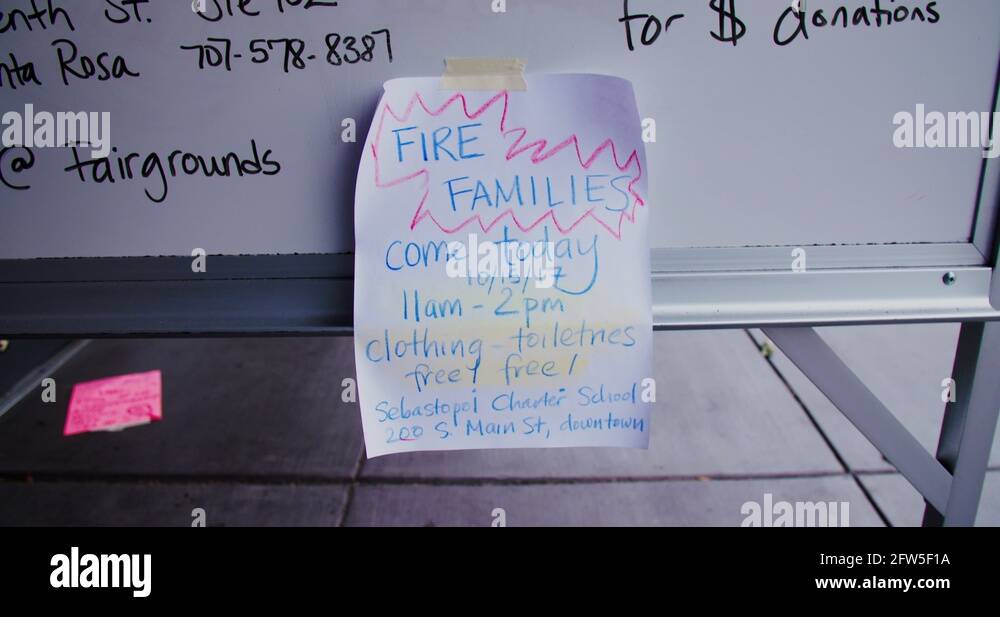 enth St. Ste 102
nta Rosa 707-578-8387
@ Fairgrounds
for $ donations
FIRE
FAMILIES
come today
10/15/17
11am - 2pm
clothing - toiletries
free! free!
Sebastopol Charter School
200 S. Main St, downtown
alamy
Image ID: 2FW5F1A
www.alamy.com